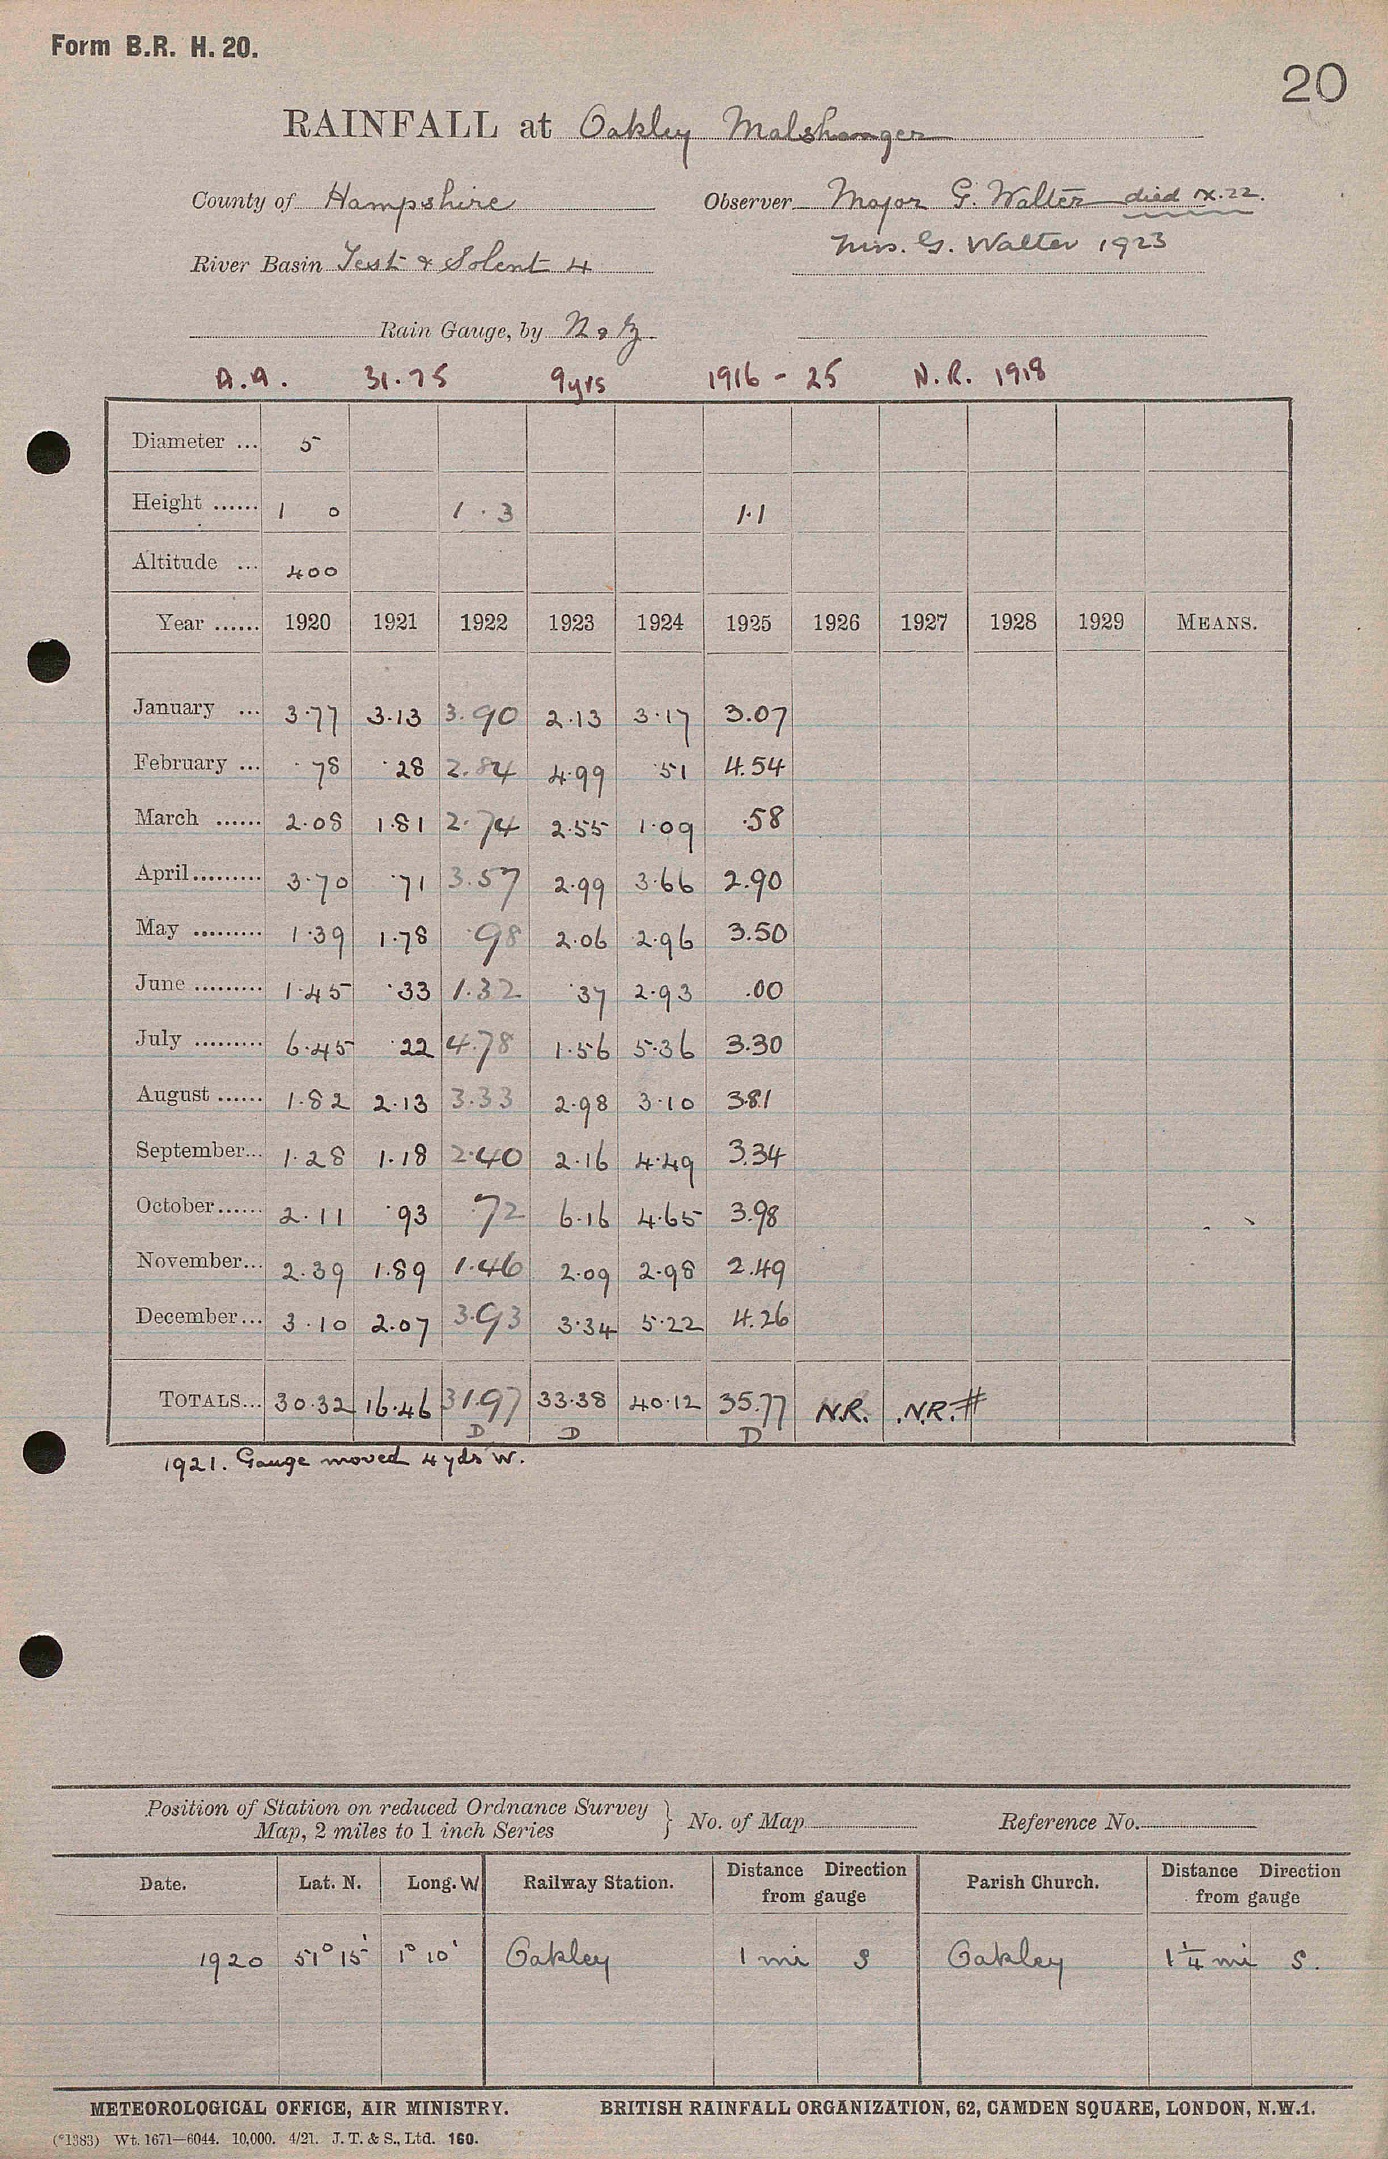 Form B.R. H. 20.
20
RAINFALL at Oakley Malshanger
County of Hampshire Observer Major G. Walter died IX.22.
Mrs. G. Walter 1923
River Basin Test & Solent 4
Rain Gauge, by N & Z
A.A. 31.75 9yrs 1916 - 25 N.R. 1918
Diameter ... 5
Height ...... 1 0 1.3 1.1
Altitude ... 400
Year ...... 1920 1921 1922 1923 1924 1925 1926 1927 1928 1929 MEANS.
January ... 3.77 3.13 3.90 2.13 3.17 3.07
February ... .78 .28 2.84 4.99 .51 4.54
March ...... 2.08 1.81 2.74 2.55 1.09 .58
April......... 3.70 .71 3.57 2.99 3.66 2.90
May ......... 1.39 1.78 .98 2.06 2.96 3.50
June ......... 1.45 .33 1.32 .37 2.93 .00
July ......... 6.45 .22 4.78 1.56 5.36 3.30
August ...... 1.82 2.13 3.33 2.98 3.10 3.81
September... 1.28 1.18 2.40 2.16 4.49 3.34
October...... 2.11 .93 .72 6.16 4.65 3.98
November... 2.39 1.89 1.46 2.09 2.98 2.49
December... 3.10 2.07 3.93 3.34 5.22 4.26
TOTALS... 30.32 16.46 31.97 33.38 40.12 35.77 N.R. N.R.#
D D D
1921. Gauge moved 4 yds W.
Position of Station on reduced Ordnance Survey
Map, 2 miles to 1 inch Series } No. of Map Reference No.
Date. Lat. N. Long. W Railway Station. Distance Direction from gauge Parish Church. Distance Direction from gauge
1920 51° 15' 1° 10' Oakley 1 mi S Oakley 1¼ mi S.
METEOROLOGICAL OFFICE, AIR MINISTRY. BRITISH RAINFALL ORGANIZATION, 62, CAMDEN SQUARE, LONDON, N.W.1.
(*1383) Wt. 1671—6044. 10,000. 4/21. J. T. & S., Ltd. 160.